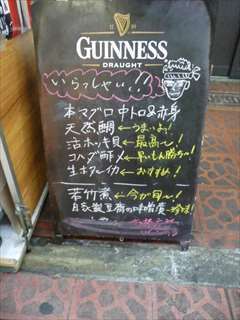 GUINNESS
DRAUGHT
いらっしゃい!!
本マグロ中トロ&赤身
天然鯛←うまいよ!
活ホッキ貝←最高〜!
コハダ酢〆←早いもん勝ち〜!
生ホタルイカ←おすすめ!
若竹煮←今が旬〜!
自家製豆腐の味噌漬←珍味!